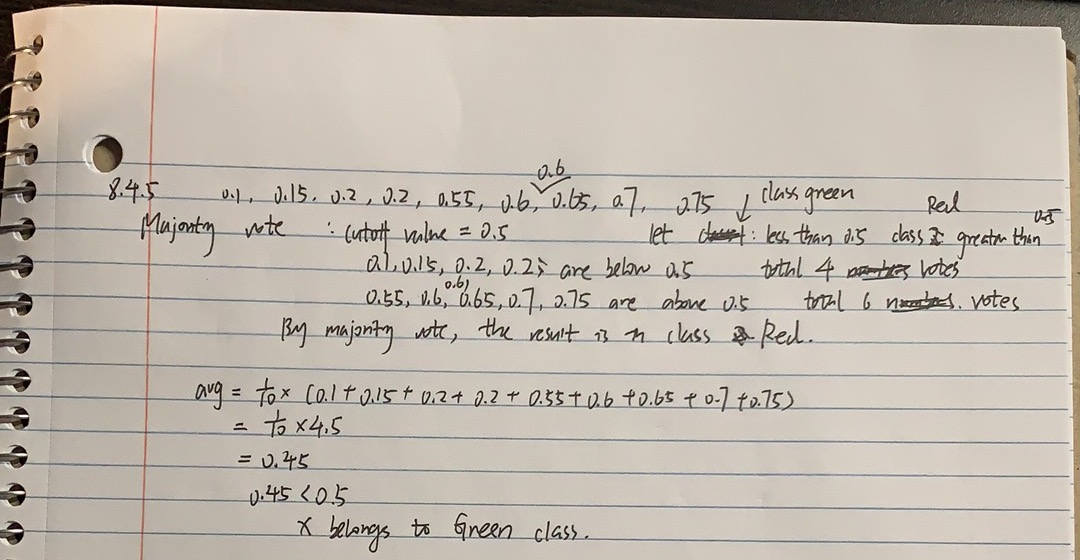 0.6
8.4.5 0.1, 0.15, 0.2, 0.2, 0.55, 0.6, 0.65, 0.7, 0.75 ↓ class green Red
Majority vote : cutoff value = 0.5 let : less than 0.5 class greater than 0.5
0.1, 0.15, 0.2, 0.2; are below 0.5 total 4 votes
0.55, 0.6, 0.6, 0.65, 0.7, 0.75 are above 0.5 total 6 votes
By majority vote, the result is in class Red.
avg = 1/10 × (0.1 + 0.15 + 0.2 + 0.2 + 0.55 + 0.6 + 0.65 + 0.7 + 0.75)
= 1/10 × 4.5
= 0.45
0.45 < 0.5
X belongs to Green class.